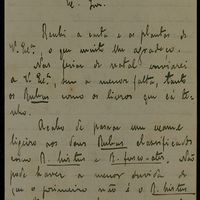 Recebi a carta e as plantas de
V. Ex.ª, o que muito lhe agradeço.
Nas ferias de natal enviarei
a V. Ex.ª, sem a menor falta, tanto
os Rubus como os livros que cá te-
nho.
Acabo de passar um exame
ligeiro aos seus Rubus classificados
como R. hirtus e R. fusco-ater. Não
pode haver a menor duvida de
que o primeiro não é o R. hirtus